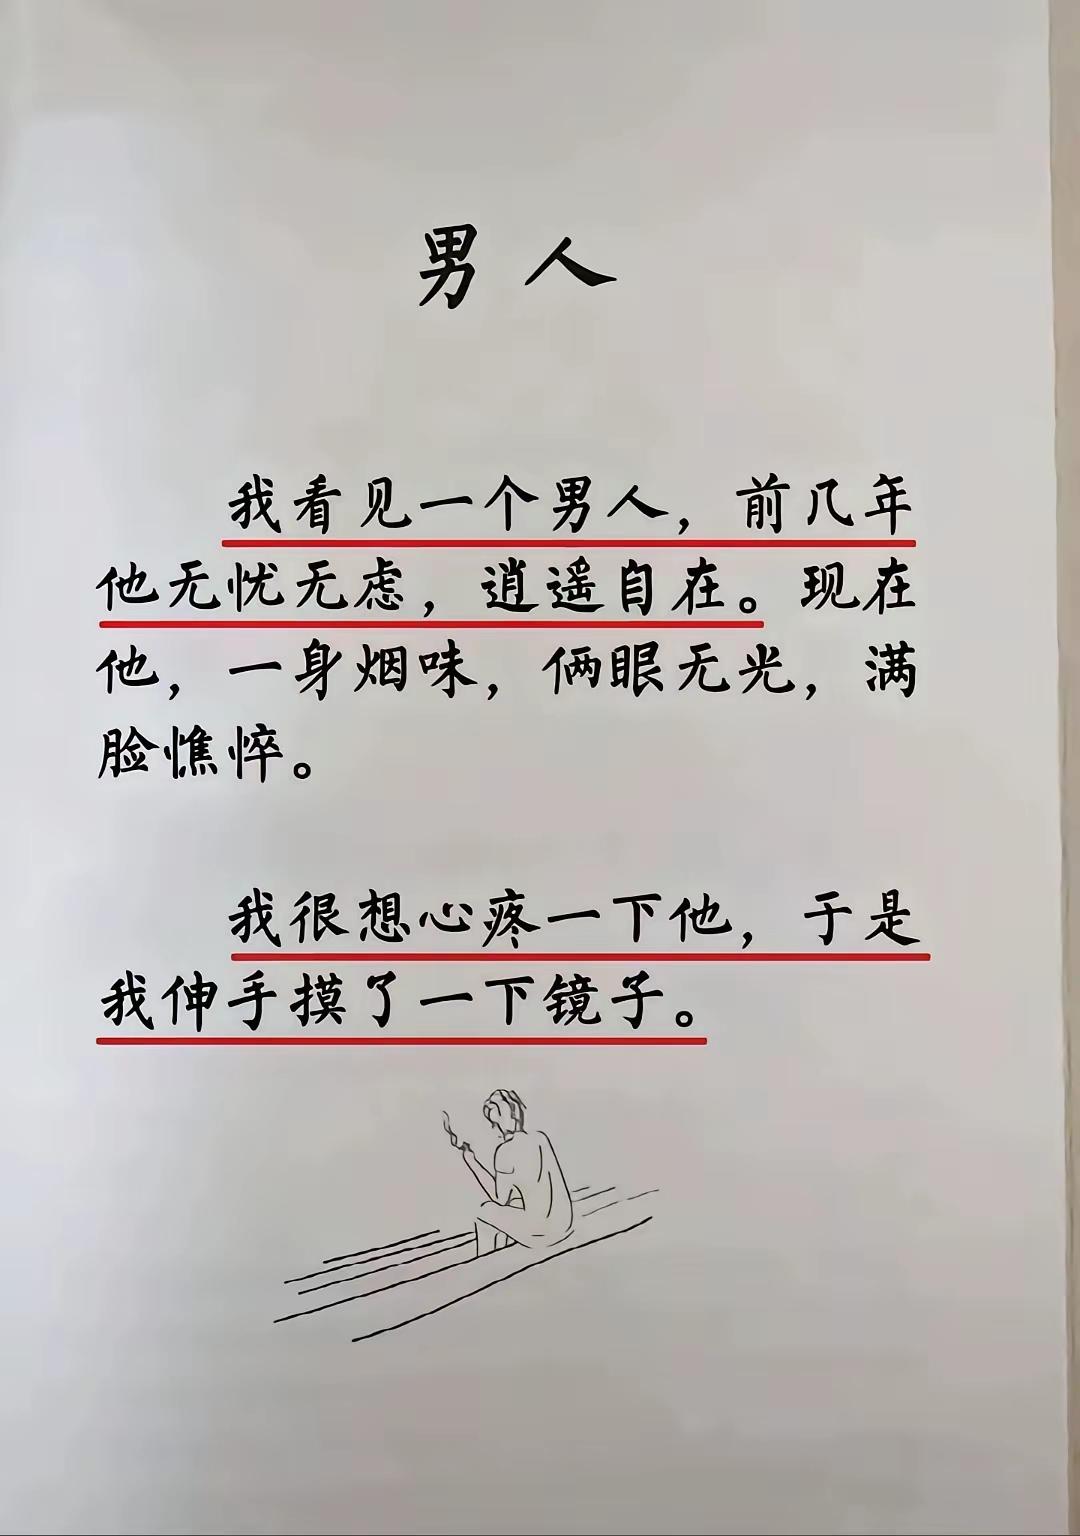 男人
我看见一个男人，前几年
他无忧无虑，逍遥自在。现在
他，一身烟味，俩眼无光，满
脸憔悴。
我很想心疼一下他，于是
我伸手摸了一下镜子。